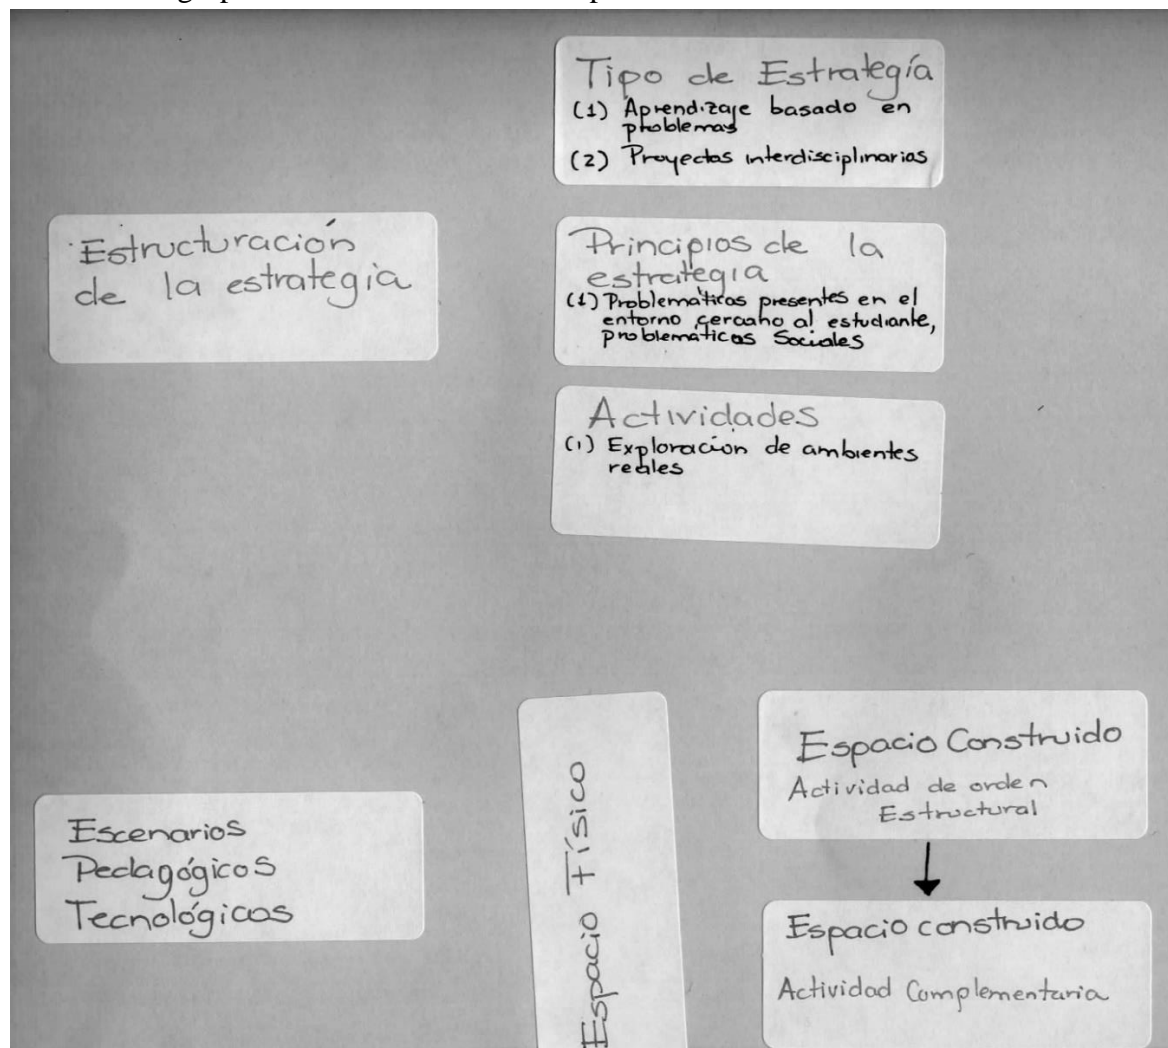 Tipo de Estrategía
(1) Aprendizaje basado en
problemas
(2) Proyectos interdisciplinarias
Estructuración
de la estrategia
Principios de la
estrategia
(1) Problemáticas presentes en el
entorno cercano al estudiante,
problemáticas Sociales
Actividades
(1) Exploración de ambientes
reales
Escenarios
Pedagógicos
Tecnológicos
Espacio Físico
Espacio Construido
Actividad de orden
Estructural
Espacio construido
Actividad Complementaria